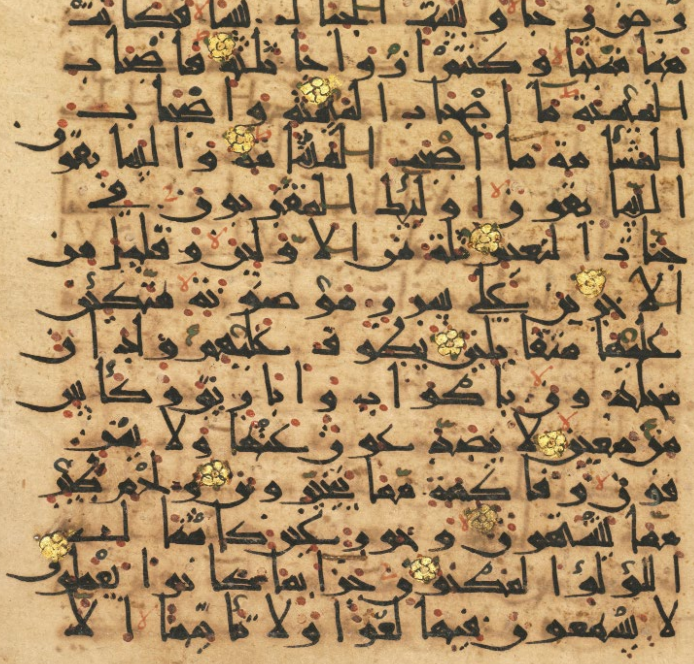 رض رجا وبست الجبال بسا فكانت
هبا منبثا وكنتم ازواجا ثلثة فاصحاب
الميمنة ما اصحاب الميمنة واصحاب
المشئمة ما اصحب المشئمة والسابقون
السابقون اولئك المقربون في
جنات النعيم ثلة من الاولين وقليل من
الاخرين على سرر موضونة متكئين
عليها متقابلين يطوف عليهم ولدان
مخلدون باكواب واباريق وكأس
من معين لا يصدعون عنها ولا ينز
فون وفاكهة مما يتخيرون ولحم طير
مما يشتهون وحور عين كامثال
اللؤلؤ المكنون جزا بما كانوا يعملون
لا يسمعون فيها لغوا ولا تأثيما الا